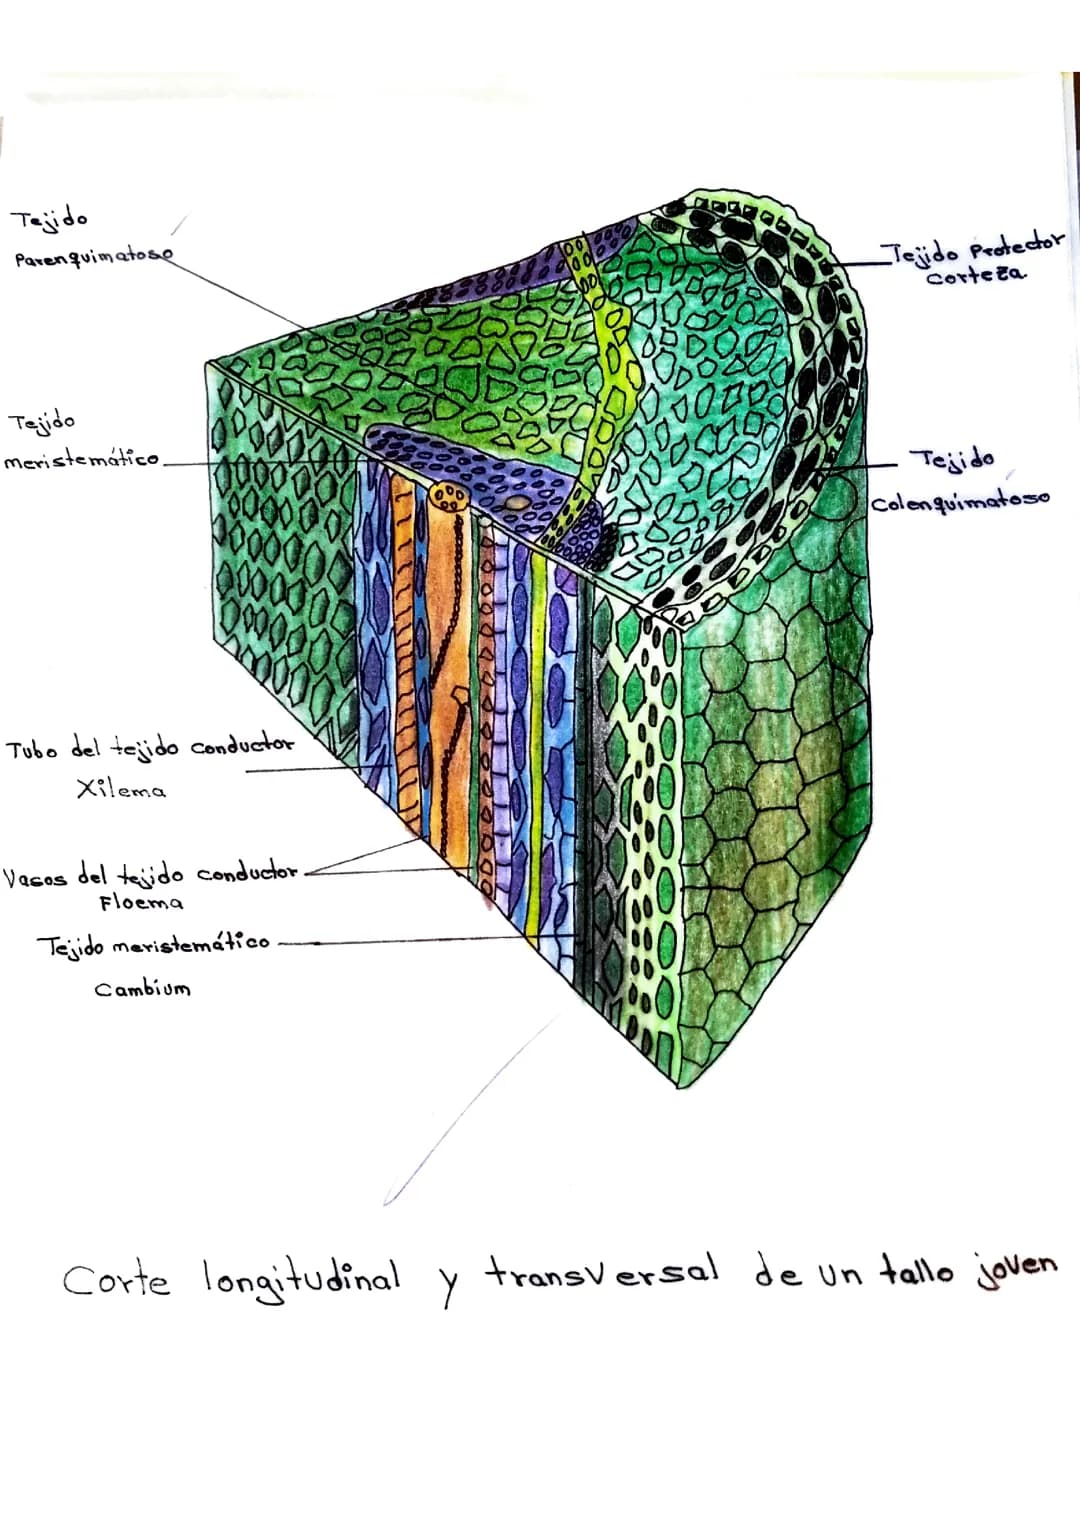 Tejido
Parenquimatoso
Tejido Protector
corteza
Tejido
meristemático
Tejido
Colenquimatoso
Tubo del tejido conductor
Xilema
Vasos del tejido conductor
Floema
Tejido meristemático
Cambium
Corte longitudinal y transversal de un tallo joven